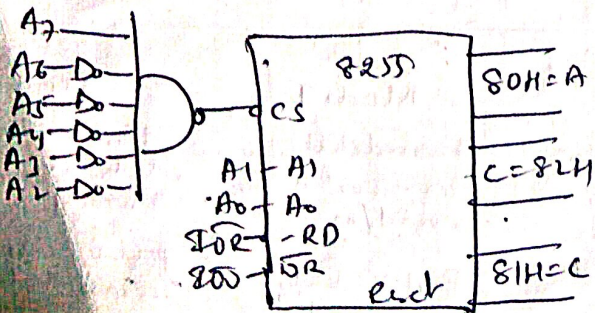 A7
A6
A5
A4
A3
A2
8255
CS
A1 A1
A0 A0
IOR RD
WR
Reset
80H=A
C=82H
81H=C